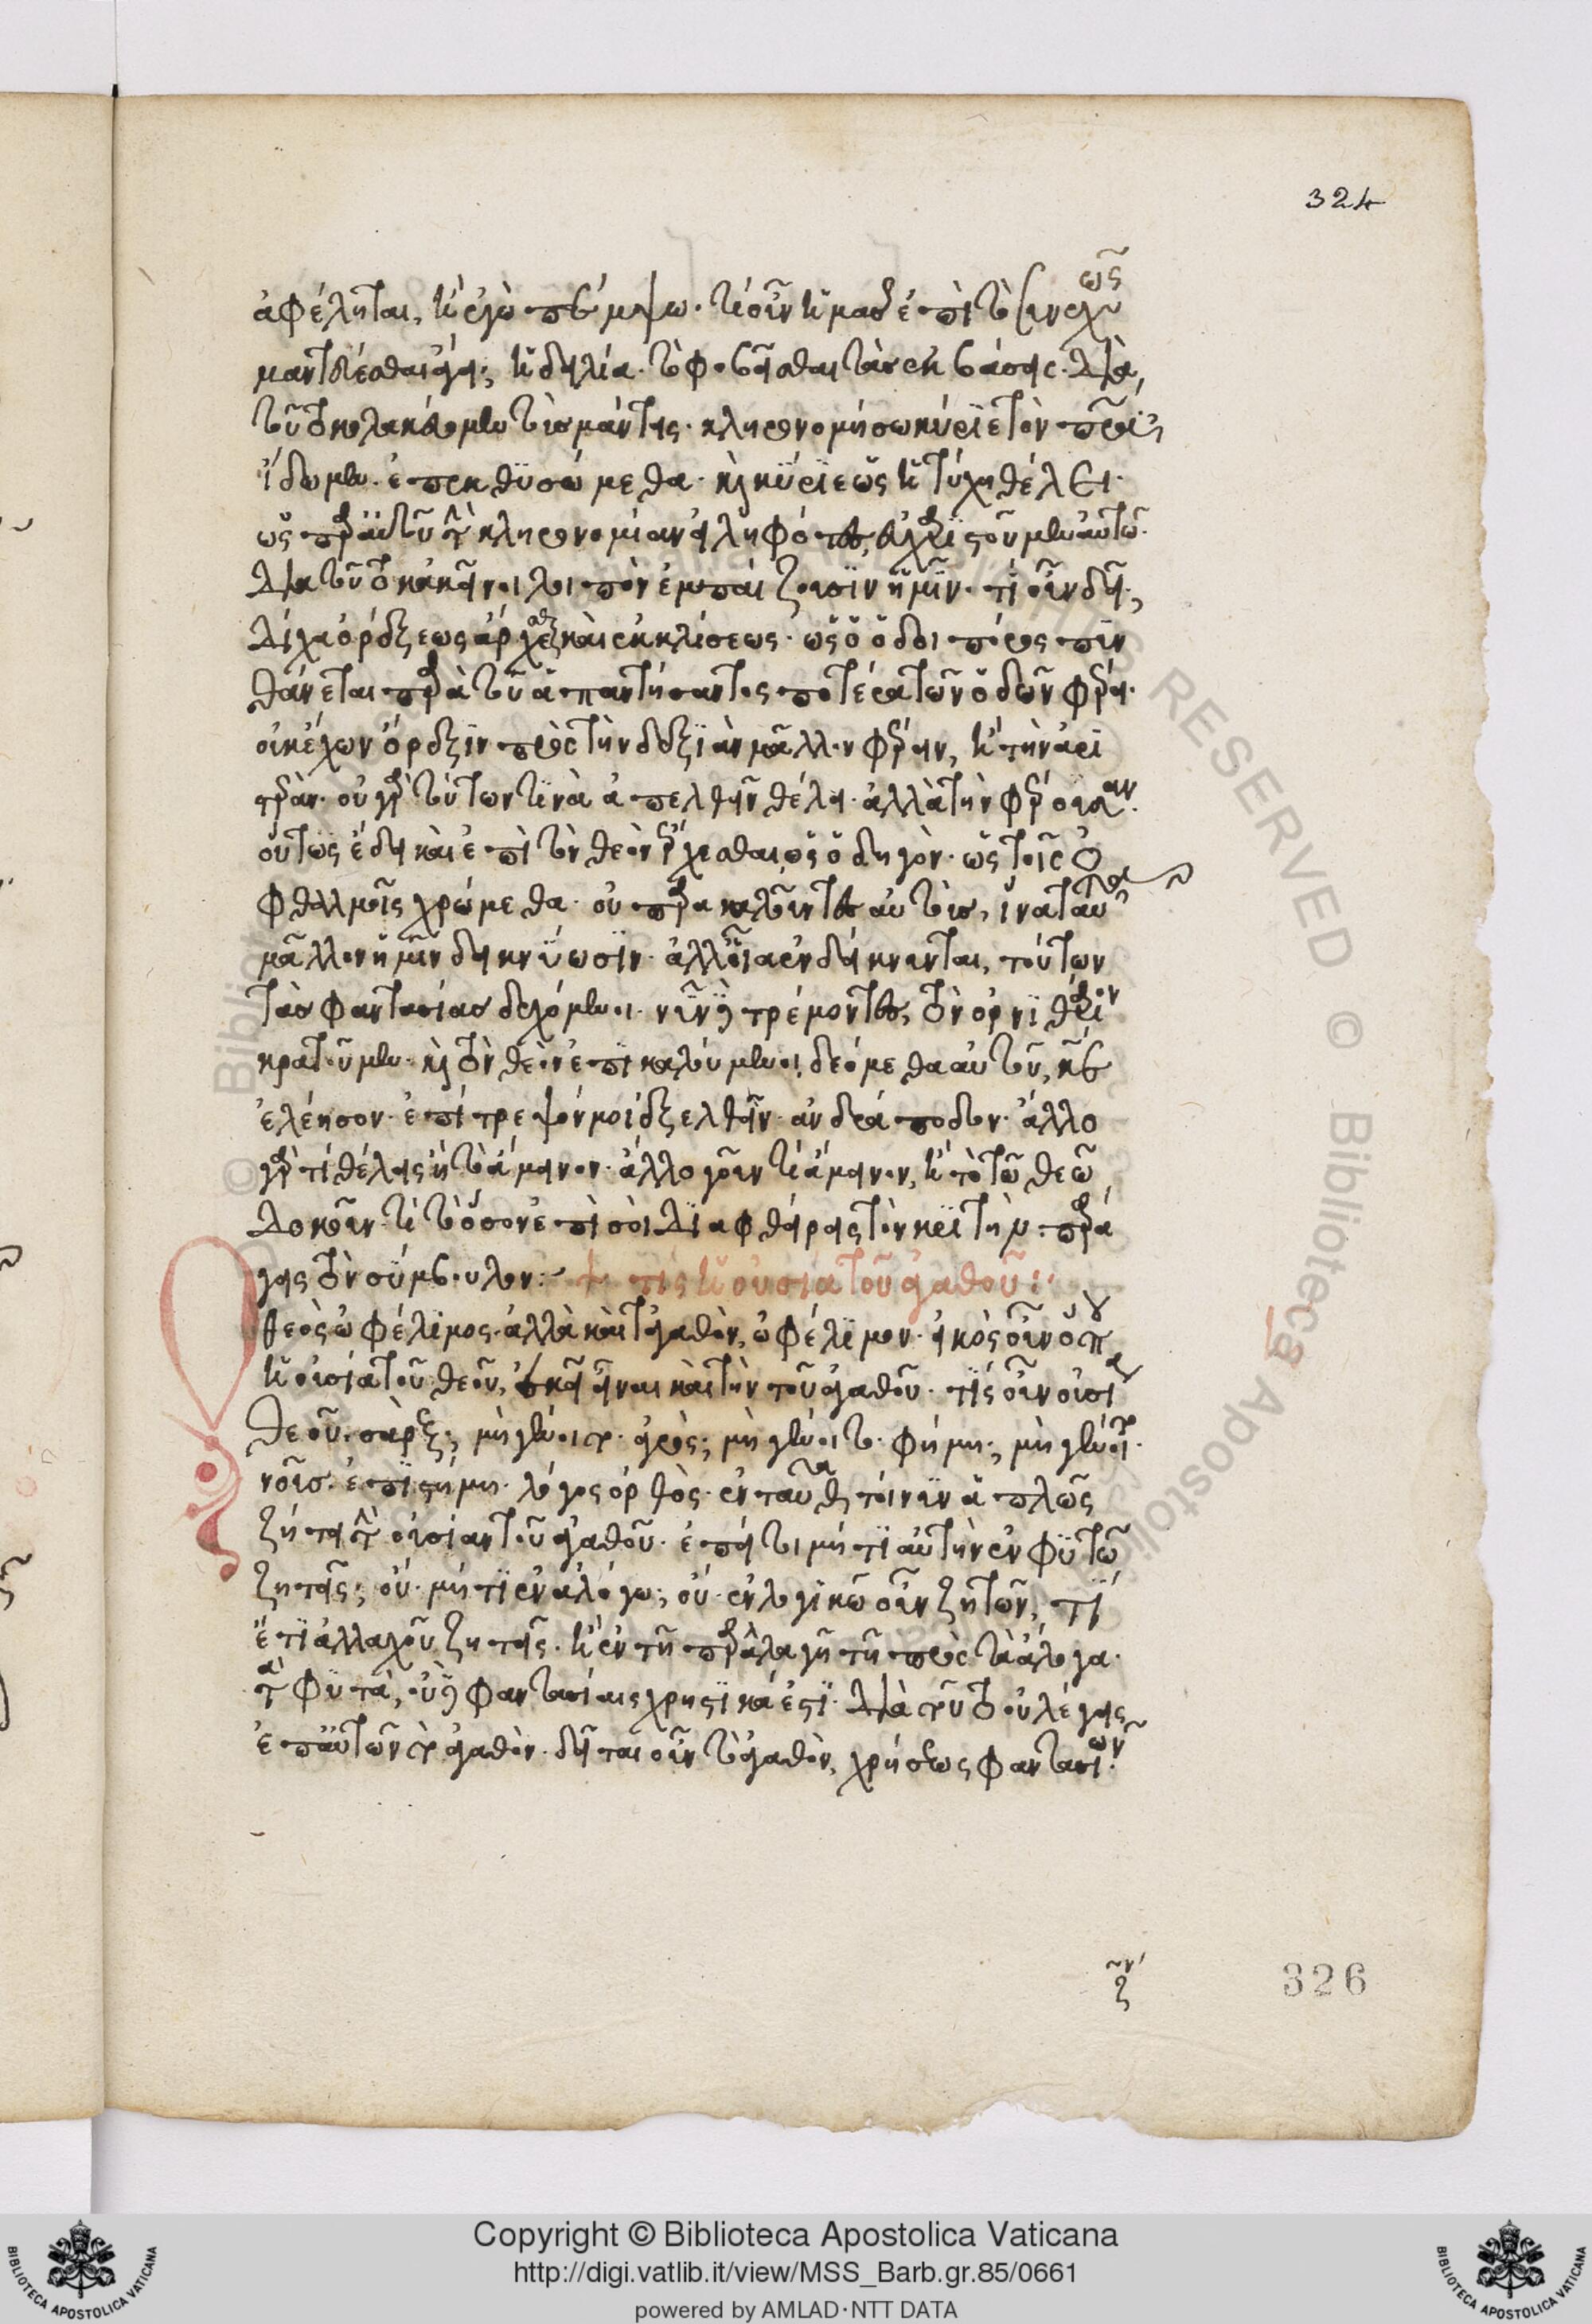 324
ἀφέληται, ἢ ἐγὼ πέμψω. τί οὖν ἡμᾶς ἐπὶ τὸ συνεχῶς
μαντεύεσθαι ἄγει; ἡ δειλία. τὸ φοβεῖσθαι τὰς ἐκβάσεις. διὰ
τοῦτο κολακεύομεν τοὺς μάντεις. κληρονομήσω κύριε τὸν πατέρα;
ἴδωμεν. ἐπεκθυσώμεθα. καὶ κύριε ὡς ἡ τύχη θέλει.
ὡς παρ' αὐτοῦ τὴν κληρονομίαν εἰληφότες, εὐχαριστοῦμεν αὐτῷ.
διὰ τοῦτο κἀκεῖνοι λοιπὸν ἐμπαίζουσιν ἡμῖν. τί οὖν δεῖ;
δίχα ὀρέξεως ἄρχεσθαι καὶ ἐκκλίσεως. ὡς ὁ ὁδοιπόρος πυν
θάνεται παρὰ τοῦ ἀπαντήσαντος ποτέρα τῶν ὁδῶν φέρει.
οὐκ ἔχων ὄρεξιν πρὸς τὴν δεξιὰν μᾶλλον φέρειν, ἢ τὴν ἀρι
στεράν. οὐ γὰρ τούτων τινὰ ἀπελθεῖν θέλει. ἀλλὰ τὴν φέρουσαν.
οὕτως ἔδει καὶ ἐπὶ τὸν θεὸν ἔρχεσθαι ὡς ὁδηγόν. ὡς τοῖς ὀ
φθαλμοῖς χρώμεθα. οὐ παρακαλοῦντες αὐτοὺς, ἵνα τὰ τοιαῦτα
μᾶλλον ἡμῖν δεικνύωσιν. ἀλλ' οἷα ἐνδείκνυνται, τούτων
τὰς φαντασίας δεχόμενοι. νῦν δὲ τρέμοντες, τὸν ὀρνιθάριον
κρατοῦμεν. καὶ τὸν θεὸν ἐπικαλούμενοι, δεόμεθα αὐτοῦ, κύριε
ἐλέησον. ἐπίτρεψόν μοι ἐξελθεῖν. ἀνδράποδον. ἄλλο
γάρ τι θέλεις ἢ τὸ ἄμεινον. ἄλλο γοῦν τι ἄμεινον, ἢ τὸ τῷ θεῷ
δοκοῦν. τί τὸ ὅσον ἐπὶ σοὶ διαφθείρεις τὸν κριτὴν. παρά
γεις τὸν σύμβουλον:
τίς ἡ οὐσία τοῦ ἀγαθοῦ:
θεὸς ὠφέλιμος. ἀλλὰ καὶ τἀγαθὸν, ὠφέλιμον. εἰκὸς οὖν ὅπου
ἡ οὐσία τοῦ θεοῦ, ἐκεῖ εἶναι καὶ τὴν τοῦ ἀγαθοῦ. τίς οὖν οὐσία
θεοῦ. σάρξ; μὴ γένοιτο. ἀγρός; μὴ γένοιτο. φήμη; μὴ γένοιτο.
νοῦς. ἐπιστήμη. λόγος ὀρθός. ἐνταῦθα τοίνυν ἁπλῶς
ζήτει τὴν οὐσίαν τοῦ ἀγαθοῦ. ἐπεί τοι μή τι αὐτὴν ἐν φυτῷ
ζητεῖς; οὔ. μή τι ἐν ἀλόγῳ; οὔ. ἐν λογικῷ οὖν ζητῶν, τί
ἔτι ἀλλαχοῦ ζητεῖς. ἢ ἐν τῇ παραλλαγῇ τῇ πρὸς τὰ ἄλογα.
τὰ φυτὰ, οὐδὲ φαντασίαις χρηστικά ἐστι. διὰ τοῦτο οὐ λέγεις
ἐπ' αὐτῶν τὸ ἀγαθόν. δεῖται οὖν τὸ ἀγαθὸν, χρήσεως φαντασιῶν.
326
Copyright © Biblioteca Apostolica Vaticana
http://digi.vatlib.it/view/MSS_Barb.gr.85/0661
powered by AMLAD·NTT DATA